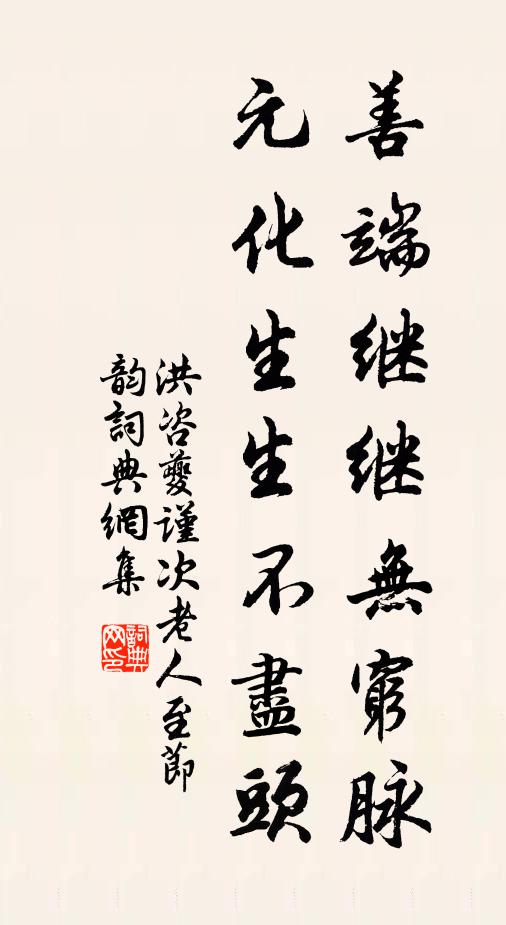 善端继继無窮脉
元化生生不盡頭
洪咨夔謹次老人至節
韵詞典網集
詞典网印